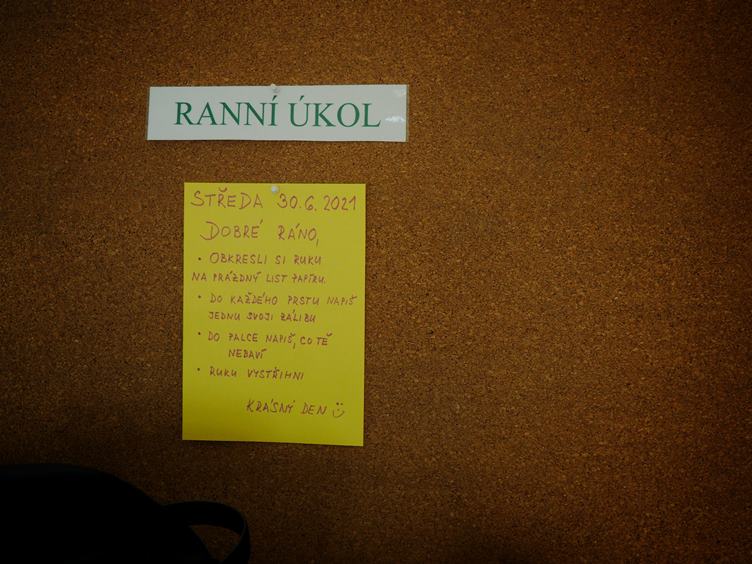 RANNÍ ÚKOL
STŘEDA 30.6.2021
DOBRÉ RÁNO,
• OBKRESLI SI RUKU
NA PRÁZDNÝ LIST PAPÍRU.
• DO KAŽDÉHO PRSTU NAPIŠ
JEDNU SVOJI ZÁLIBU
• DO PALCE NAPIŠ, CO TĚ
NEBAVÍ
• RUKU VYSTŘIHNI
KRÁSNÝ DEN